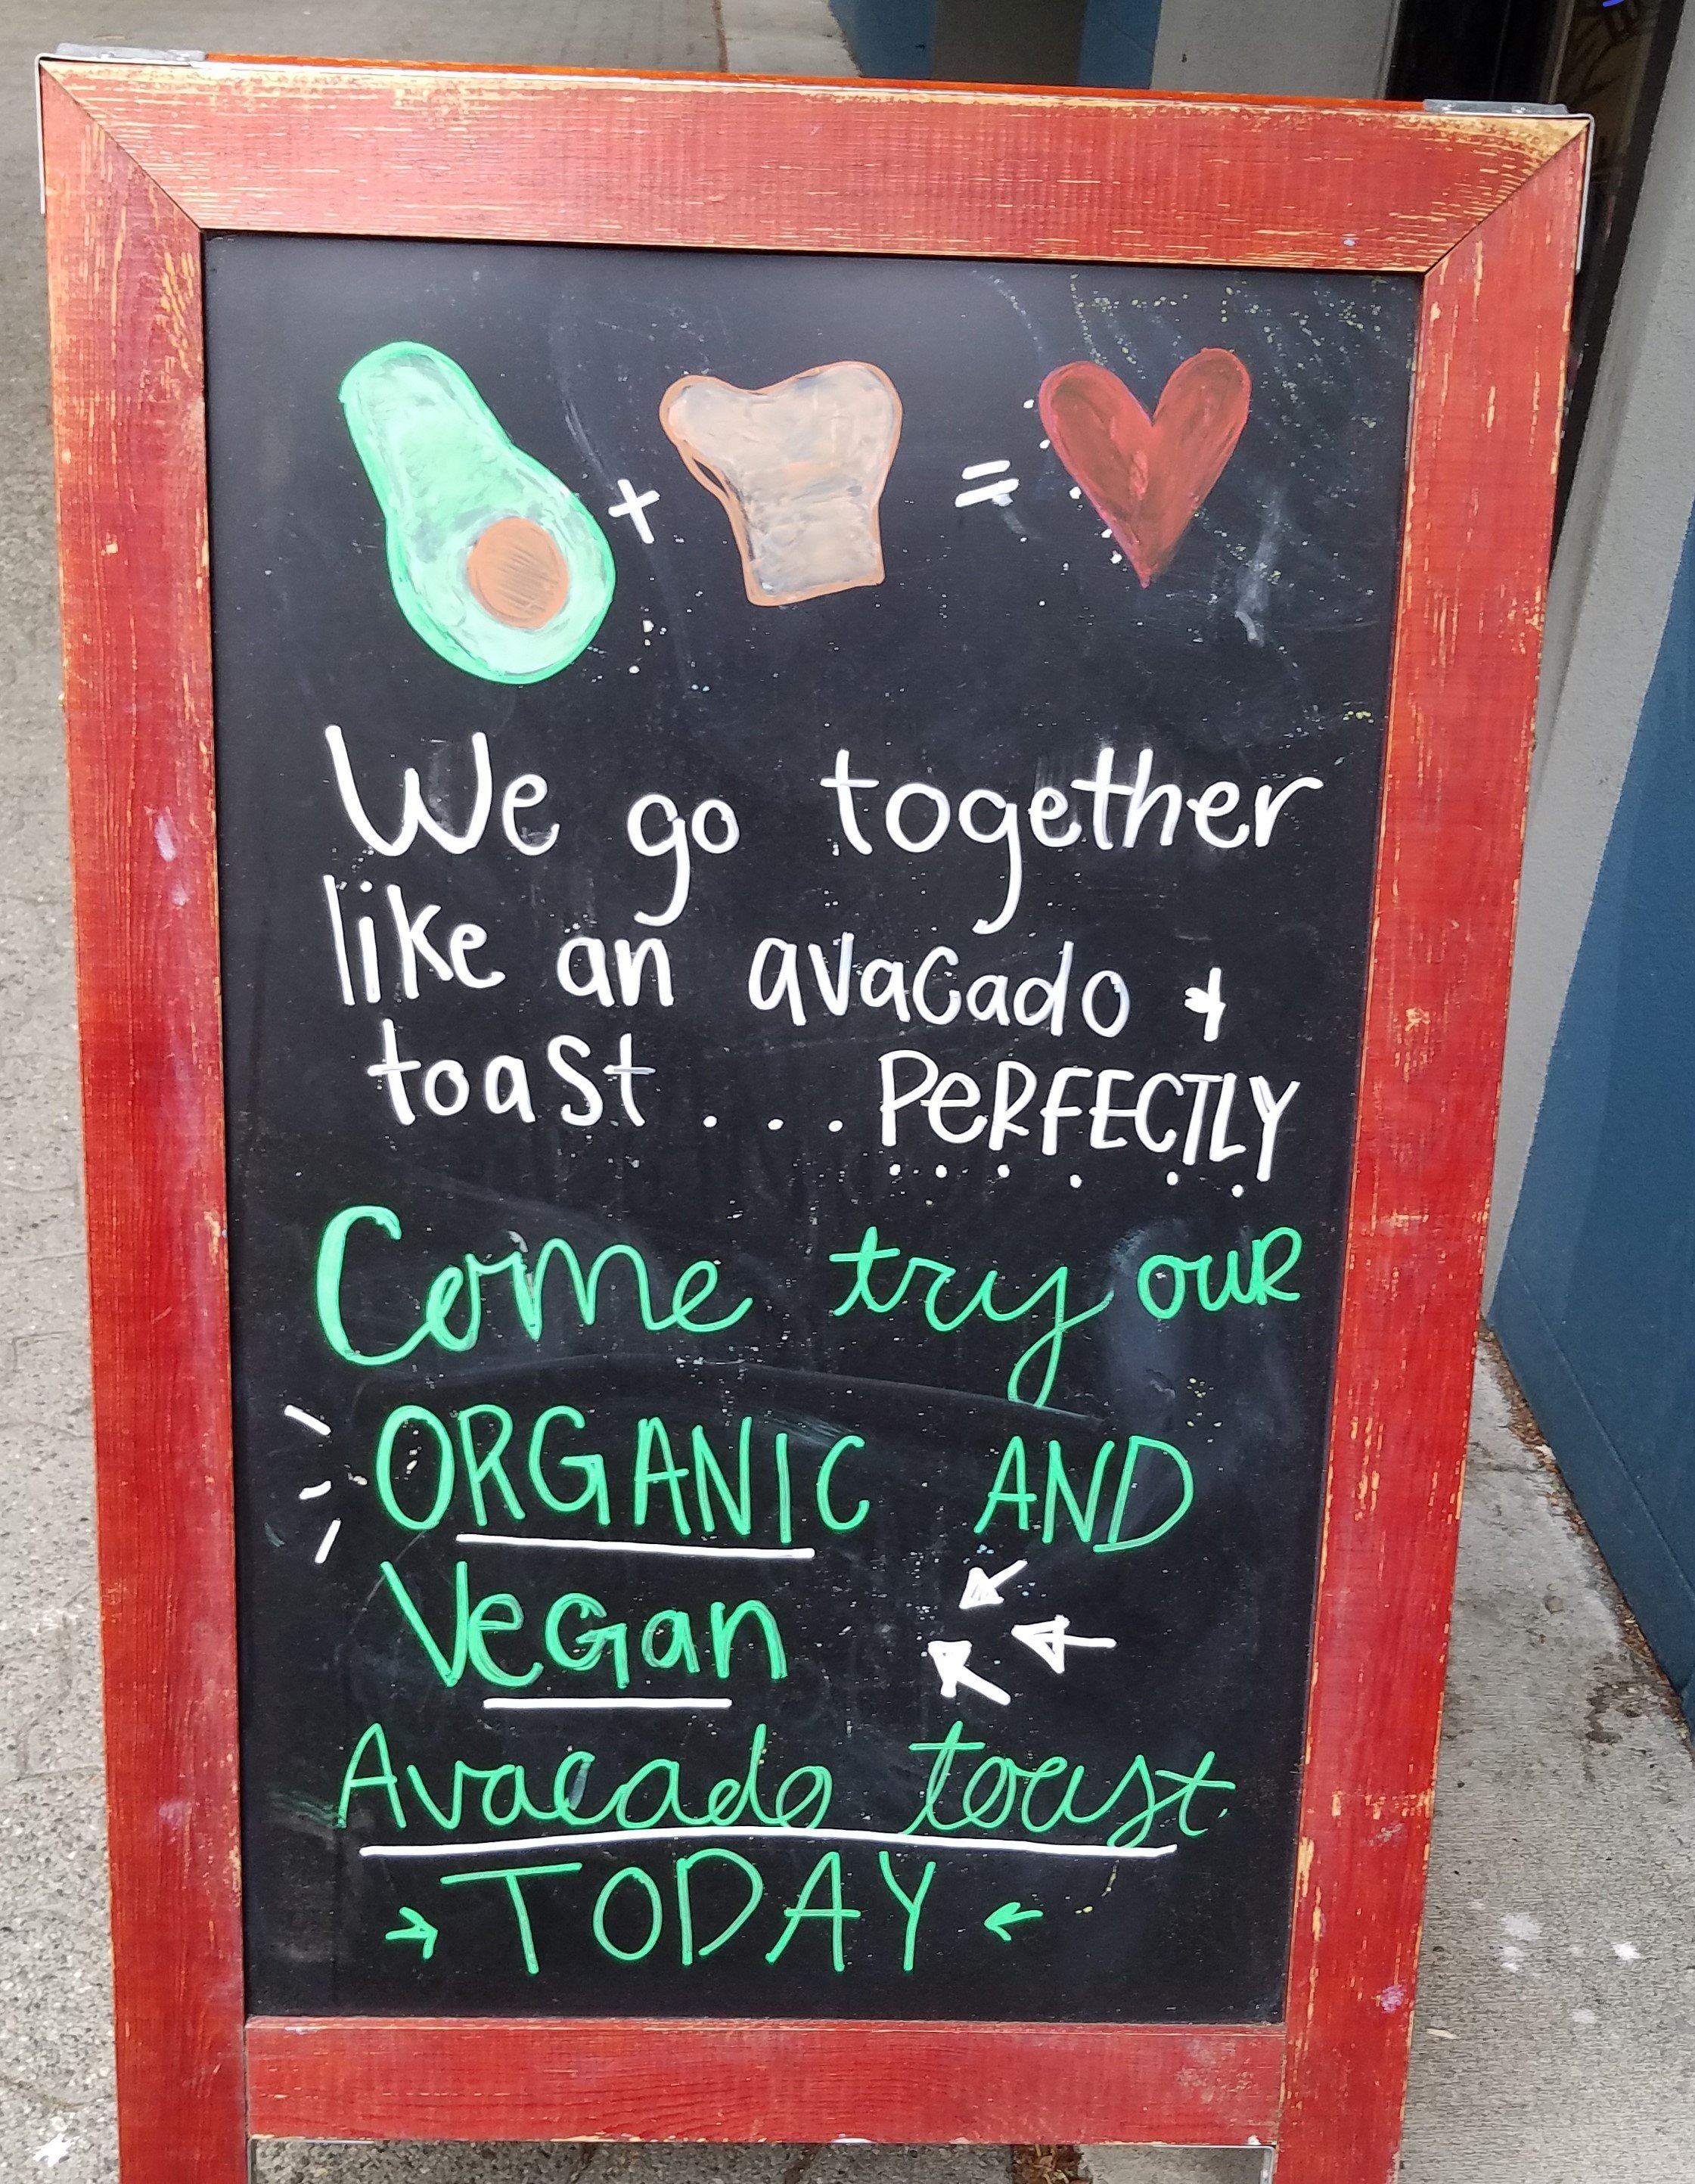 + =
We go together
like an avacado &
toast . . . PeRFECTLY
Come try our
ORGANIC AND
Vegan
Avacado toast
→ TODAY ←